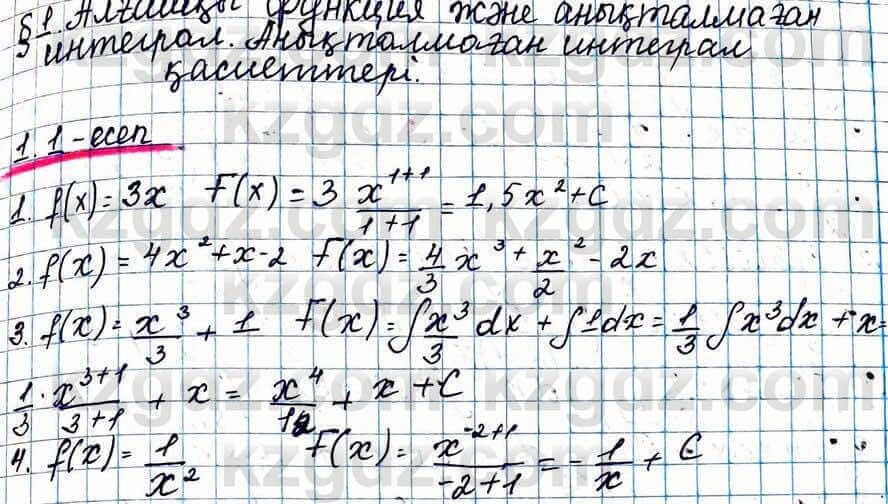 §1. Алғашқы функция және анықталмаған
интеграл. Анықталмаған интеграл
қасиеттері.
1.1-есеп
1. f(x) = 3x F(x) = 3 x^{1+1}/(1+1) = 1,5x² + C
2. f(x) = 4x² + x - 2 F(x) = 4/3 x³ + x²/2 - 2x
3. f(x) = x³/3 + 1 F(x) = ∫ x³/3 dx + ∫ 1dx = 1/3 ∫ x³dx + x =
1/3 · x^{3+1}/(3+1) + x = x⁴/12 + x + C
4. f(x) = 1/x² F(x) = x^{-2+1}/(-2+1) = - 1/x + C
kzgdz.com